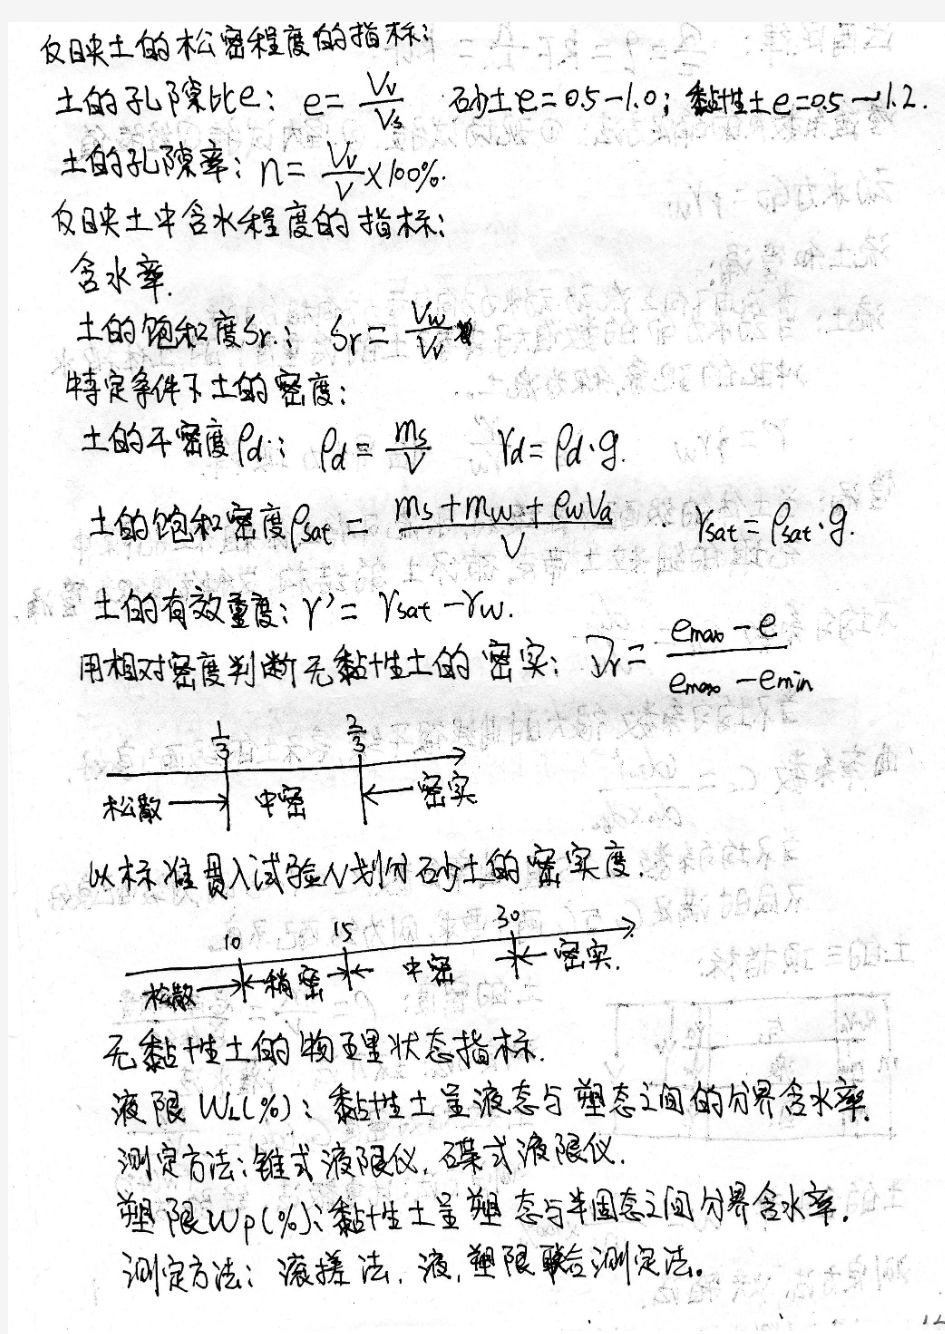 反映土的松密程度的指标:
土的孔隙比e: e=Vv/Vs 砂土e=0.5-1.0; 黏性土e=0.5-1.2.
土的孔隙率: n=Vv/V×100%.
反映土中含水程度的指标:
含水率.
土的饱和度Sr.: Sr=Vw/Vv
特定条件下土的密度:
土的干密度ρd: ρd=ms/V γd=ρd·g.
土的饱和密度ρsat=(ms+mw+ρwVa)/V γsat=ρsat·g.
土的有效重度: γ'=γsat-γw.
用相对密度判断无黏性土的密实: Dr=(emax-e)/(emax-emin)
1/3 2/3
松散→ 中密 ←密实
以标准贯入试验N划分砂土的密实度.
10 15 30
松散→ ←稍密→ ←中密→ ←密实.
无黏性土的物理状态指标.
液限WL(%): 黏性土呈液态与塑态之间的分界含水率.
测定方法: 锥式液限仪, 碟式液限仪.
塑限Wp(%): 黏性土呈塑态与半固态之间分界含水率.
测定方法: 滚搓法, 液, 塑限联合测定法。